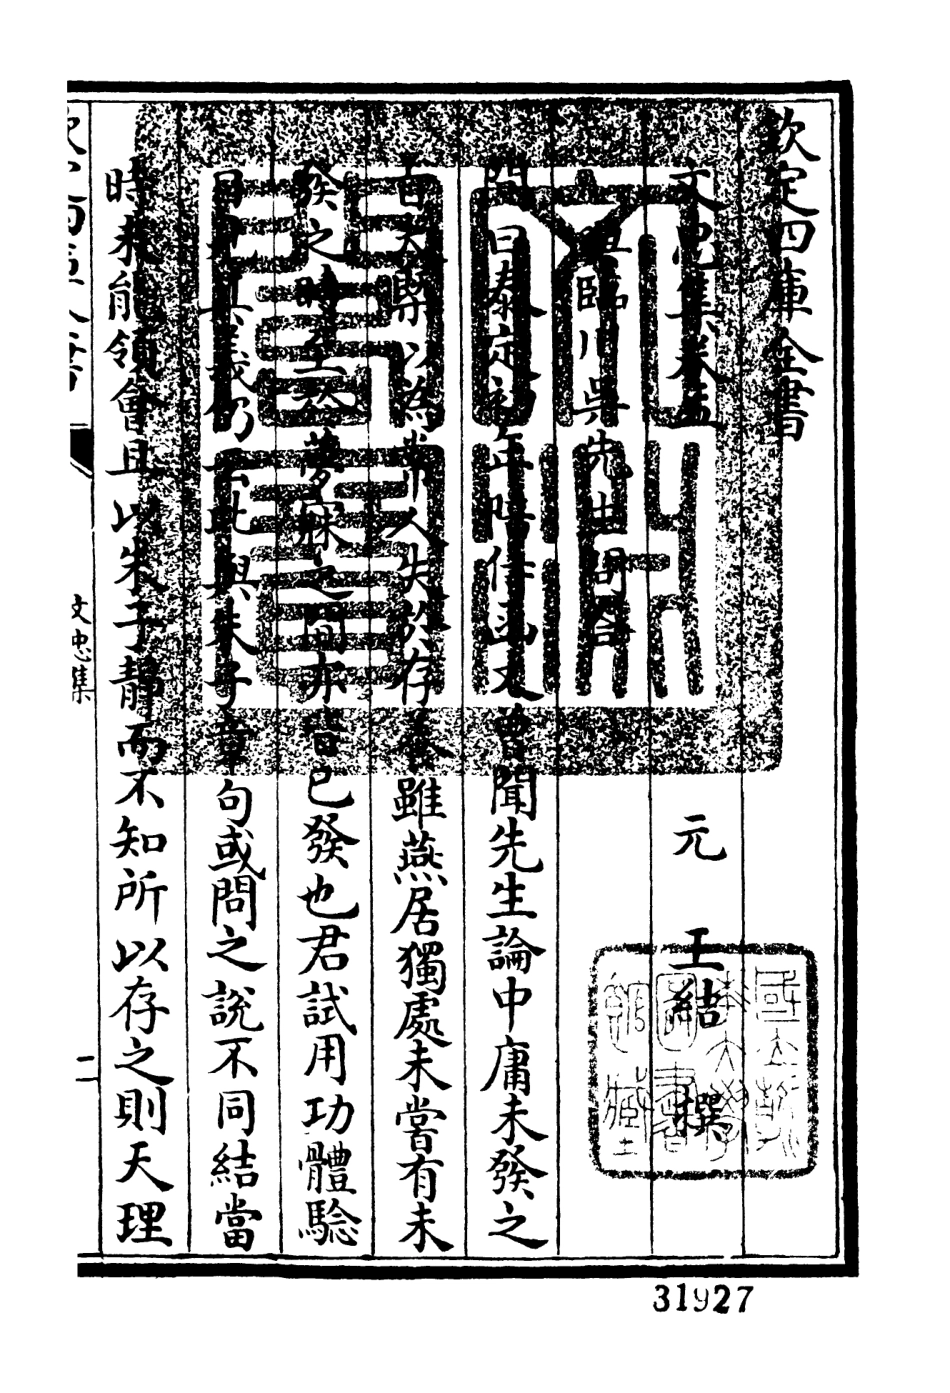 欽定四庫全書
文忠集卷五
元 王結 撰
與臨川吳先生問答
問曰泰定初年時侍函丈曽聞先生論中庸未發之
旨大槩以為常人失於存養雖燕居獨處未嘗有未
發之時至於夢寐之間亦皆已發也君試用功體驗
自見其義仍云此與朱子章句或問之說不同結當
時未能領會且以朱子靜而不知所以存之則天理
文忠集
一
國立
大學
圖書
館藏
31927